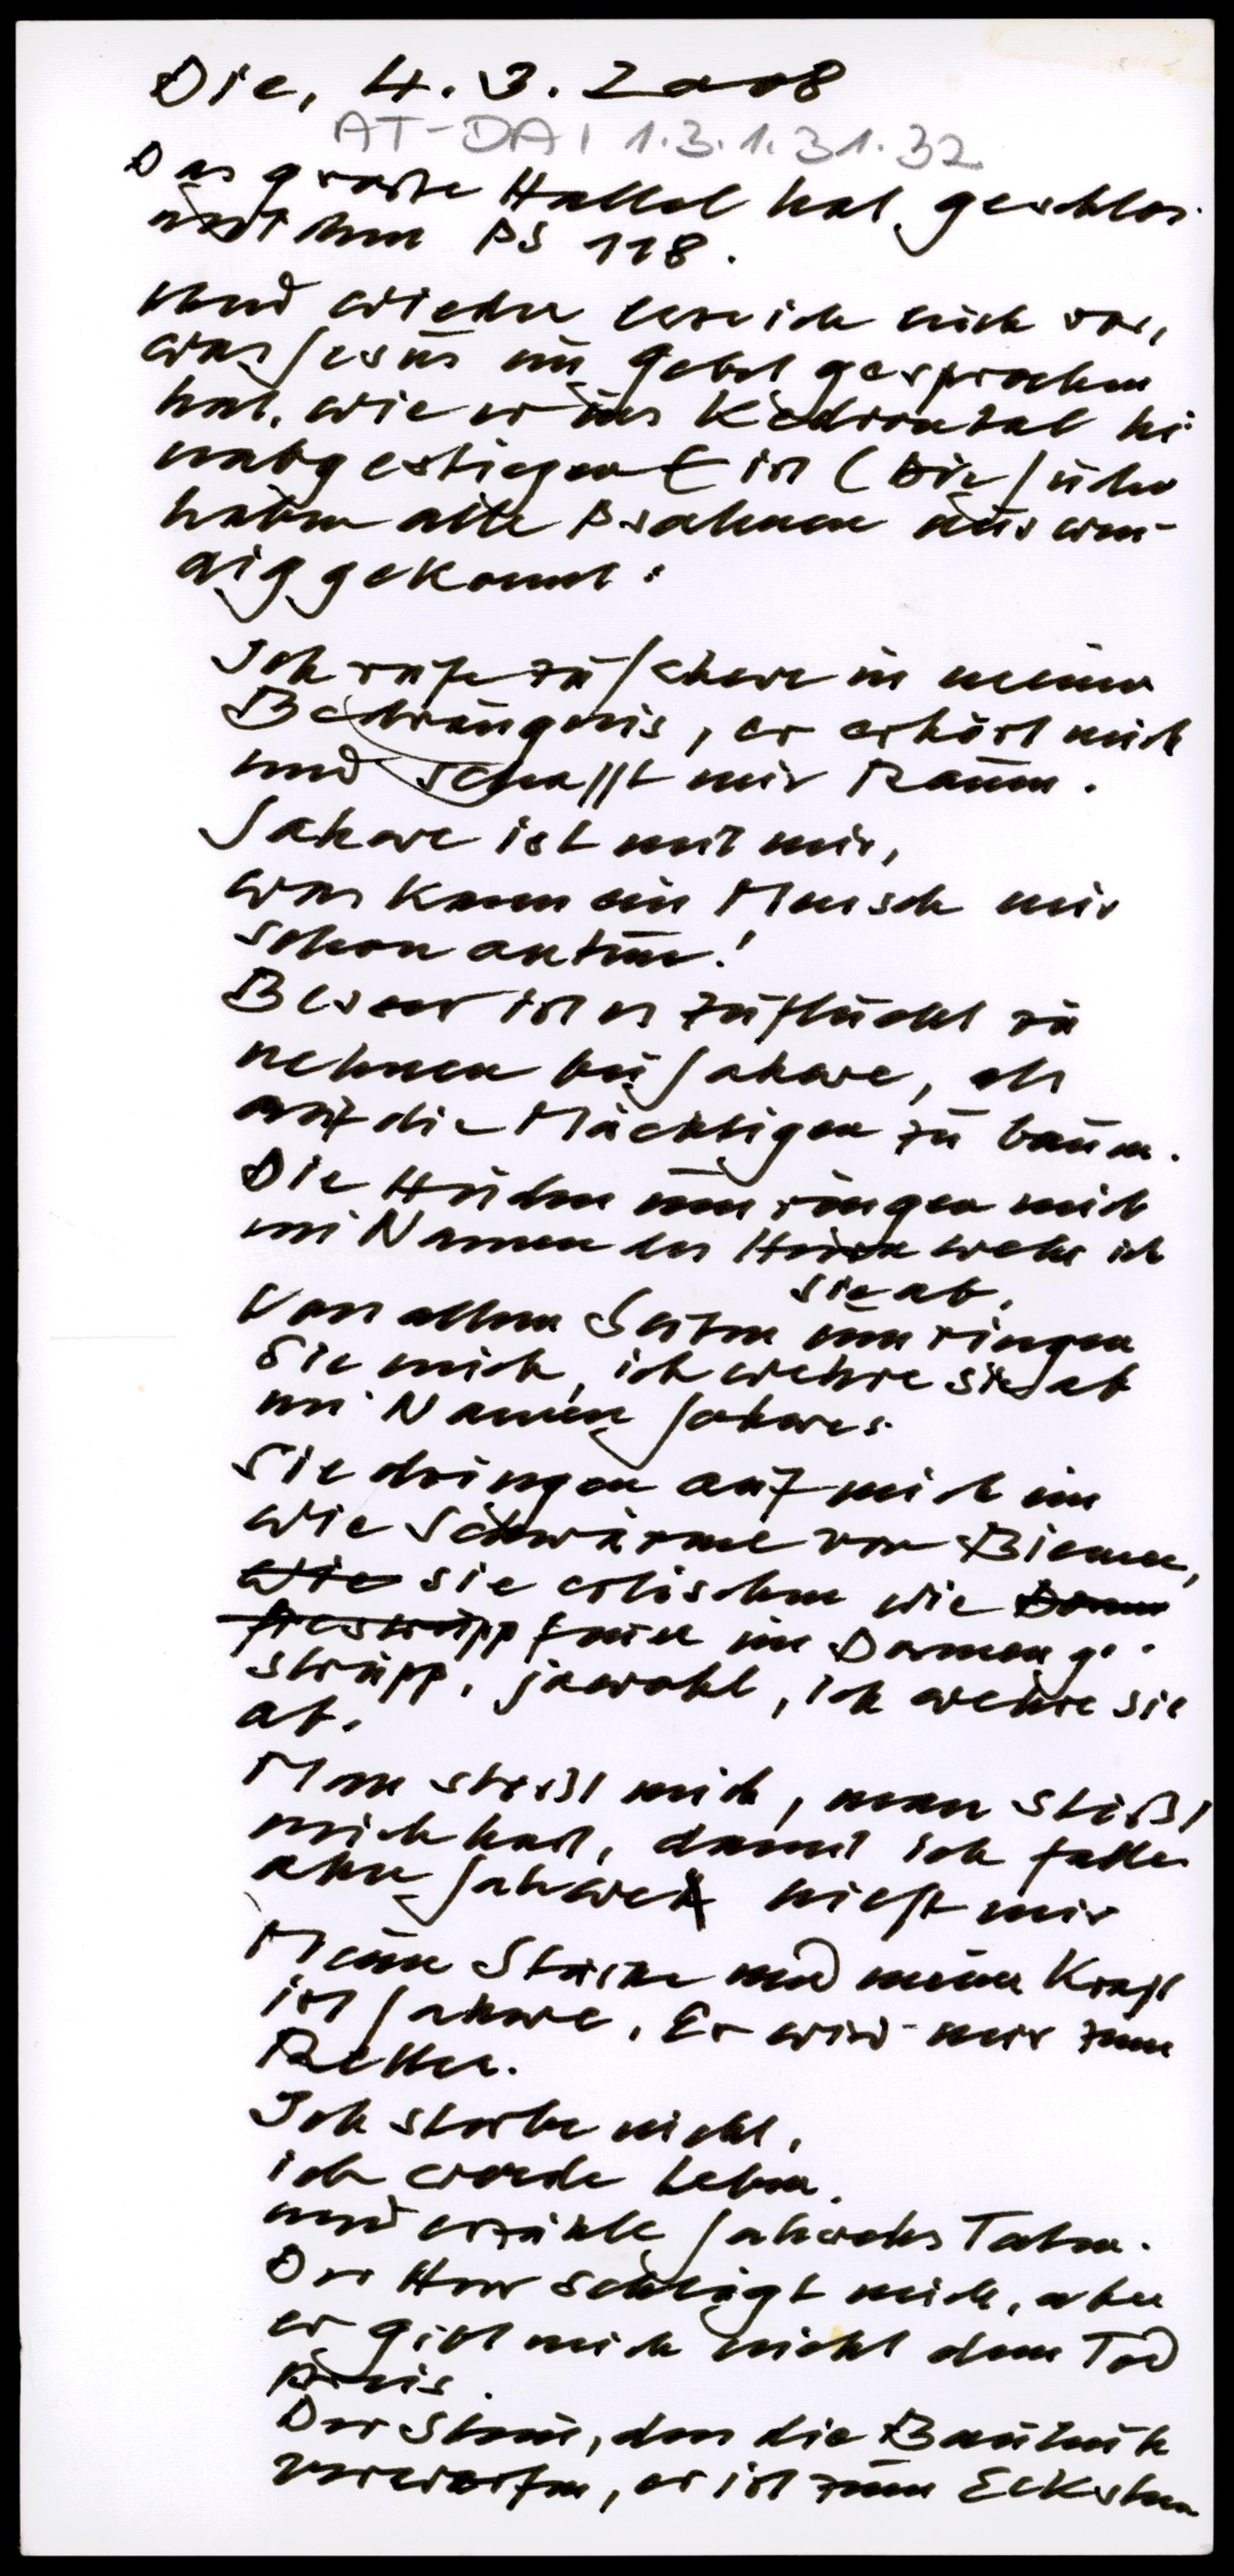 Die, 4.3.2008
AT-DAI 1.3.1.31.32
Das große Hallel hat geschlos
mit dem PS 118.
Und wieder lese ich mich vor,
was Jesus im Gebet gesprochen
hat, wie er ins Kedrontal hi
nabgestiegen ist (Die Juden
haben alle Psalmen auswen-
dig gekonnt.
Ich rufe zu Jahwe in meiner
Bedrängnis, er erhört mich
und schafft mir Raum.
Jahwe ist mit mir,
was kann ein Mensch mir
schon antun!
Besser ist es Zuflucht zu
nehmen bei Jahwe, als
auf die Mächtigen zu bauen.
Die Heiden umringen mich
im Namen des Herrn wehr ich
sie ab.
Von allen Seiten umringen
sie mich, ich wehre sie ab
im Namen Jahwes.
Sie dringen auf mich ein
wie Schwärme von Bienen,
wie sie erlischen wie Dornen
gestrüpp feuer im Dornenge-
strüpp, jawohl, ich wehre sie
ab.
Man stößt mich, man stößt
mich hart, damit ich falle
aber Jahwe hilft mir
Meine Stärke und meine Kraft
ist Jahwe. Er wird mir zum
Retter.
Ich sterbe nicht,
ich werde leben.
und erzähle Jahwehs Taten.
Der Herr schlägt mich, aber
er gibt mich nicht dem Tod
preis.
Der Stein, den die Bauleute
verwarfen, er ist zum Eckstein